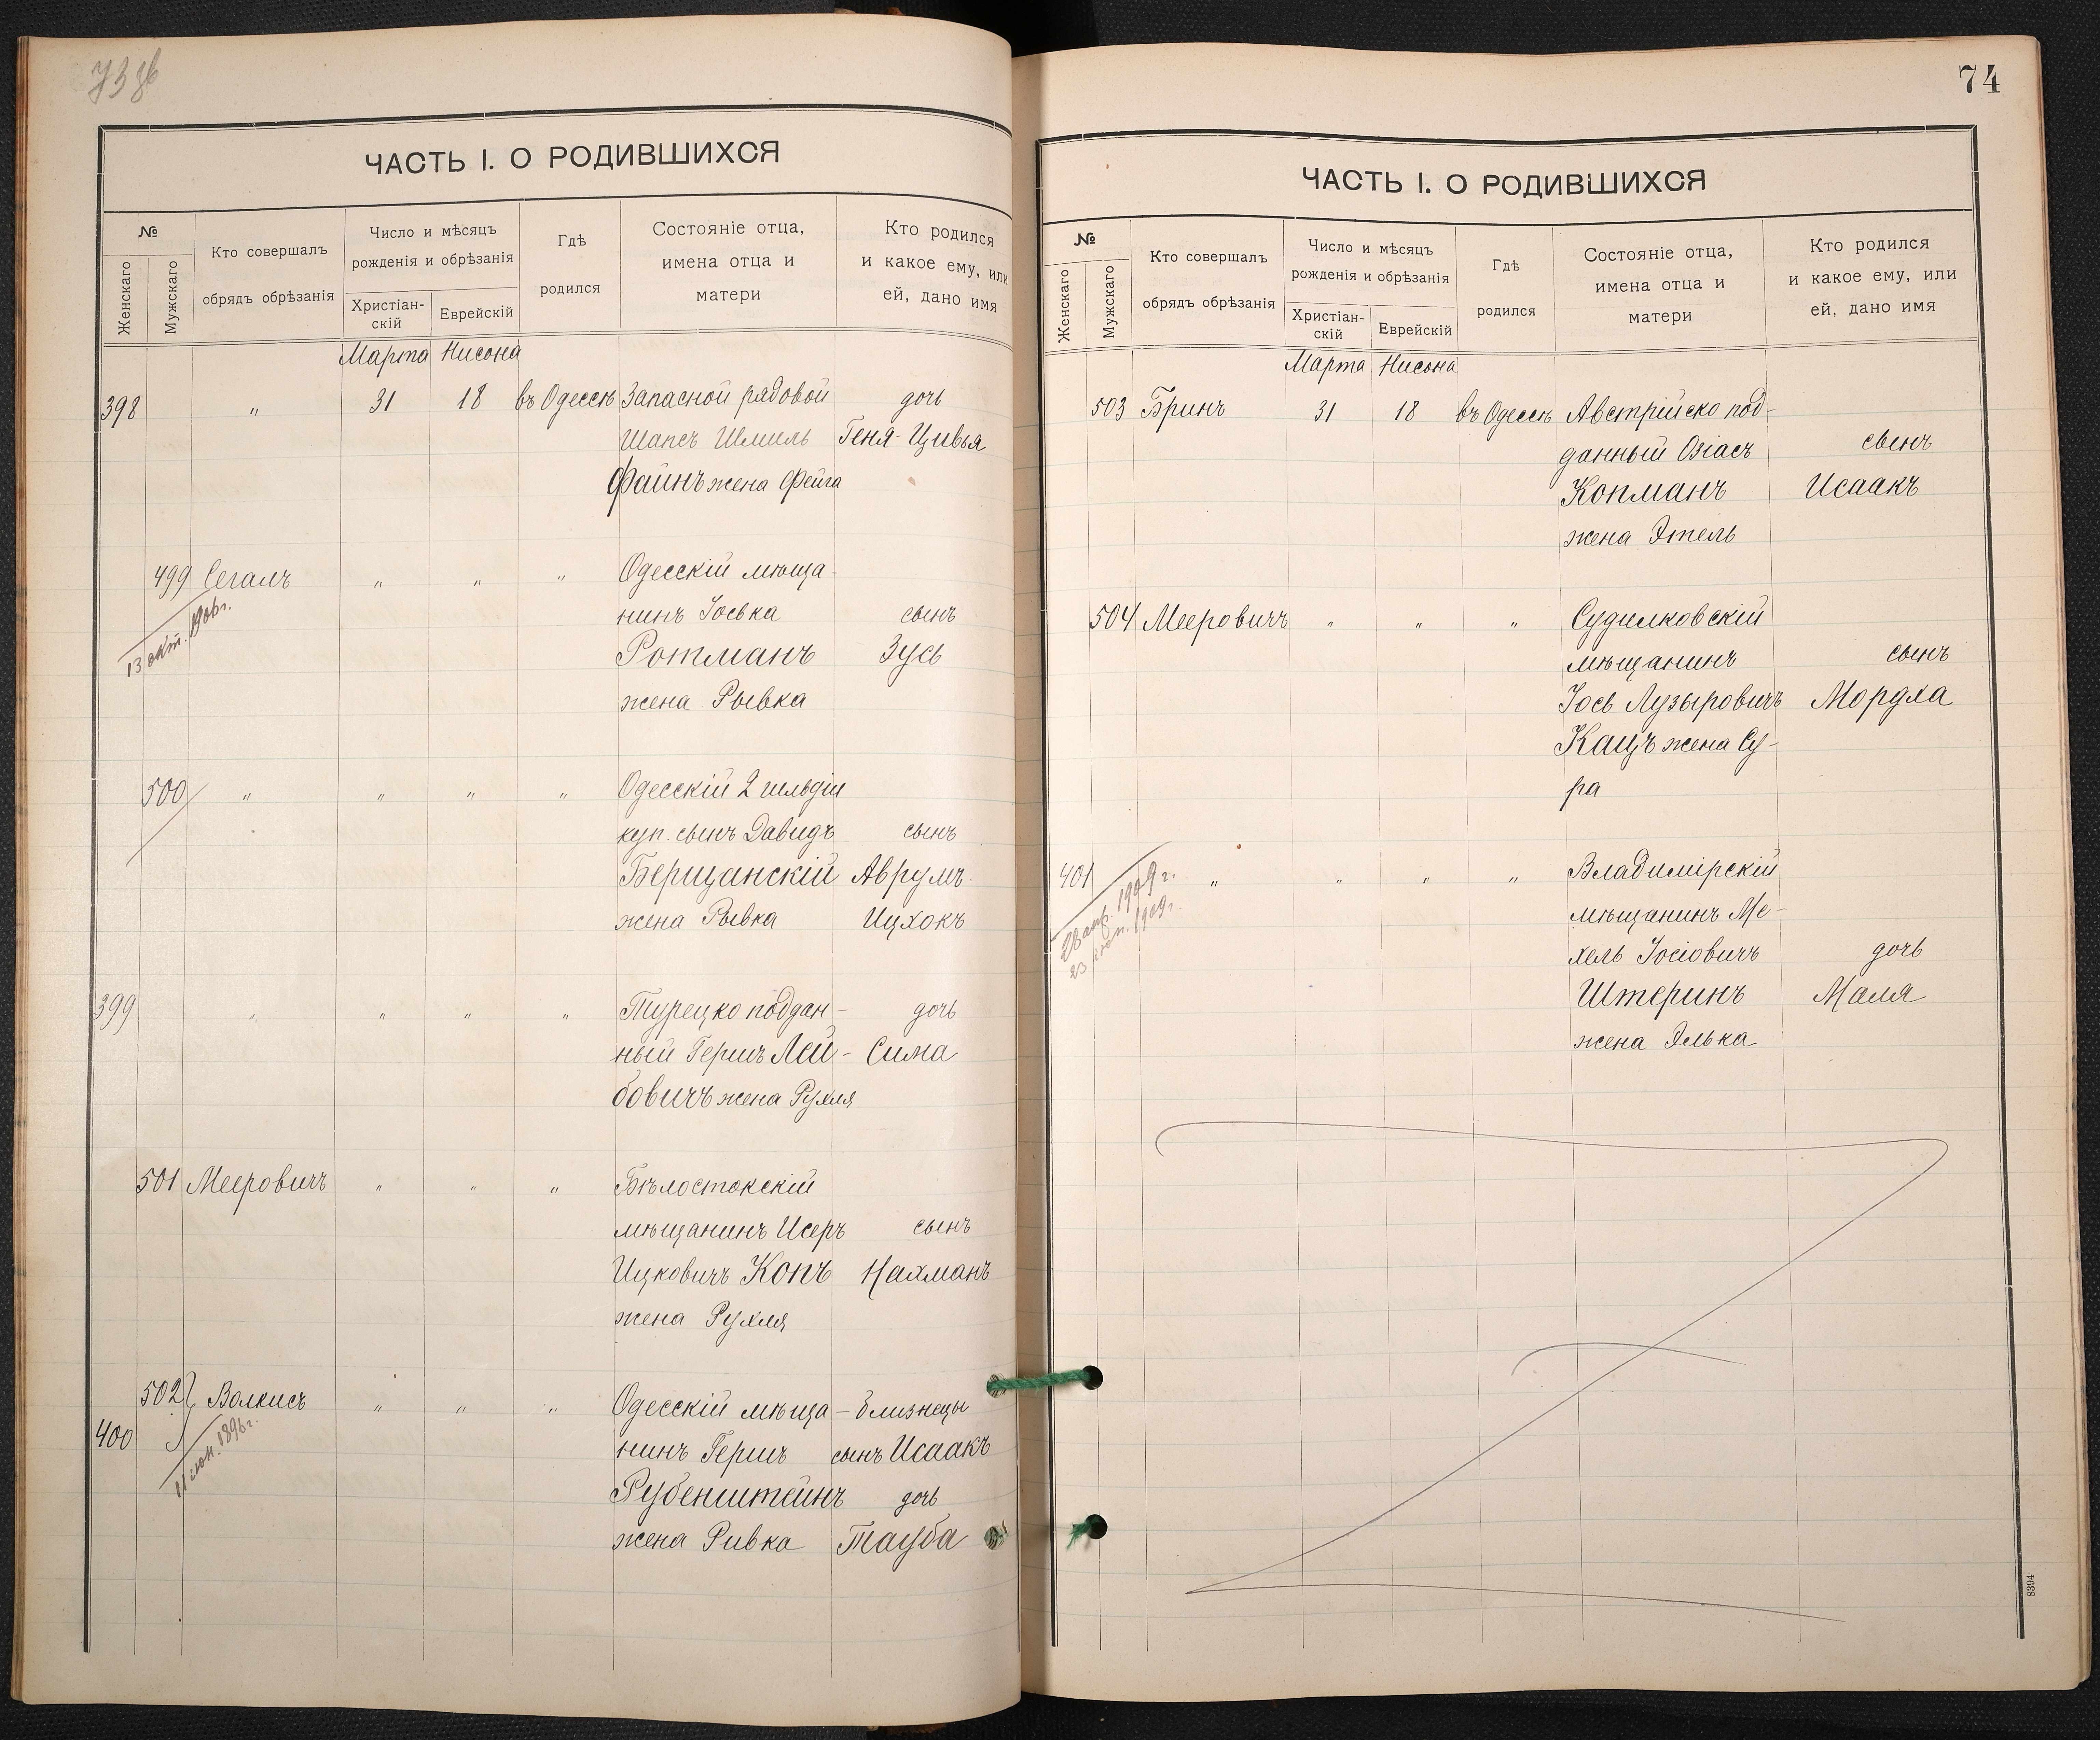 ЧАСТЬ I. О РОДИВШИХСЯ
№
Женскаго
Мужскаго
Кто совершалъ
обрядъ обрѣзанія
Число и мѣсяцъ
рожденія и обрѣзанія
Христіан-
скій
Еврейскій
Гдѣ
родился
Состояніе отца,
имена отца и
матери
Кто родился
и какое ему, или
ей, дано имя
Марта Нисона
398 " 31 18 въ Одессѣ Запасной рядовой дочь
Шапсъ Шмиль Геня-Цивья
Файнъ жена Фейга
499 Сегалъ " " " Одесскій мѣща-
13 окт. 1906г.
нинъ Іоська сынъ
Ротманъ Зусь
жена Рывка
500 " " " " Одесскій 2 гильдіи
куп. сынъ Давидъ сынъ
Берщанскій Аврумъ-
жена Рывка Ицхокъ
399 " " " " Турецко поддан- дочь
ный Гершъ Лей- Сима
бовичъ жена Рухля
501 Мееровичъ " " " Бѣлостокскій
мѣщанинъ Исеръ сынъ
Ицковичъ Копъ Нахманъ
жена Рухля
502 Волкисъ " " " Одесскій мѣща- близнецы
400 нинъ Гершъ сынъ Исаакъ
11 іюн. 1896г.
Рубенштейнъ дочь
жена Ривка Тауба
74
ЧАСТЬ I. О РОДИВШИХСЯ
№
Женскаго
Мужскаго
Кто совершалъ
обрядъ обрѣзанія
Число и мѣсяцъ
рожденія и обрѣзанія
Христіан-
скій
Еврейскій
Гдѣ
родился
Состояніе отца,
имена отца и
матери
Кто родился
и какое ему, или
ей, дано имя
Марта Нисона
503 Бринъ 31 18 въ Одессѣ Австрійско под-
данный Озіасъ сынъ
Копманъ Исаакъ
жена Этель
504 Мееровичъ " " " Судилковскій
мѣщанинъ сынъ
Іось Лузыровичъ Мордха
Кацъ жена Су-
ра
401 " " " " Владимірскій
28 апр. 1909г.
23 1909г.
мѣщанинъ Ме-
хель Іосіовичъ дочь
Штеринъ Маля
жена Элька
8394